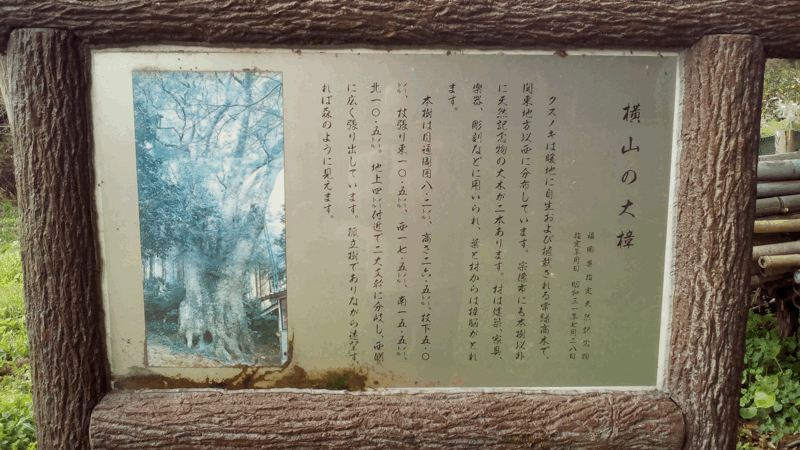 横山の大樟
福岡県指定天然記念物
指定年月日 昭和三一年七月二八日
クスノキは暖地に自生および植栽される常緑高木で、
関東地方以西に分布しています。宗像市にも本樹以外
に天然記念物の大木が二本あります。材は建築、家具、
楽器、彫刻などに用いられ、葉と材からは樟脳がとれ
ます。
本樹は目通周囲八・二㍍、高さ二六・五㍍、枝下五・〇
㍍、枝張り東一〇・五㍍、西一七・五㍍、南一五・五㍍、
北一〇・五㍍。地上四㍍付近で二大支幹に分岐し、西側
に広く張り出しています。孤立樹でありながら遠望す
れば森のように見えます。